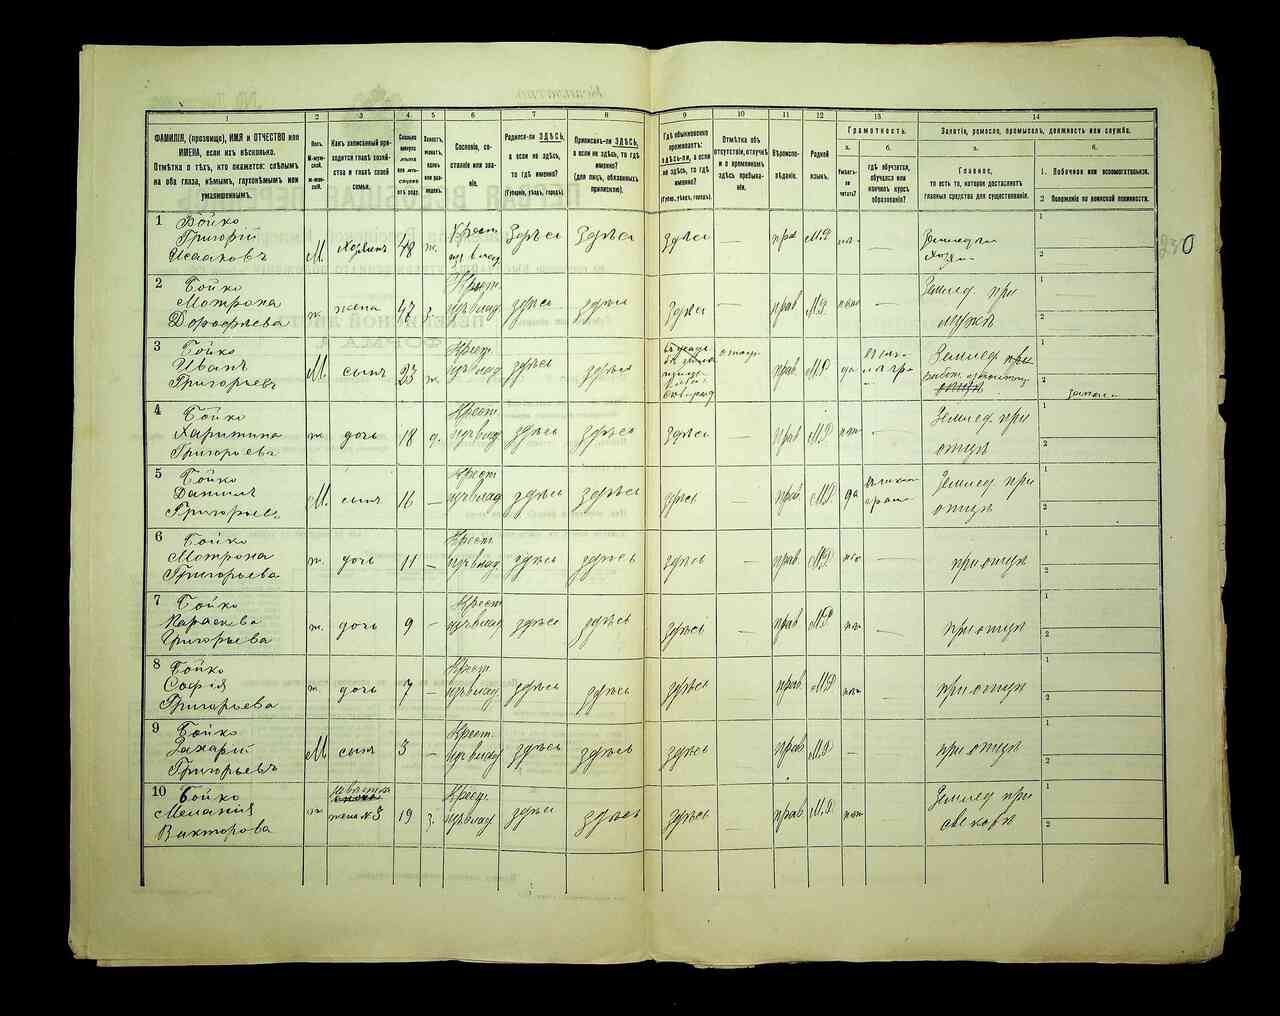 1
2
3
4
5
6
7
8
9
10
11
12
13
14
ФАМИЛІЯ, (прозвище), ИМЯ и ОТЧЕСТВО или
ИМЕНА, если ихъ нѣсколько.
Отмѣтка о тѣхъ, кто окажется: слѣпымъ
на оба глаза, нѣмымъ, глухонѣмымъ или
умалишеннымъ.
Полъ.
М-муж-
ской.
Ж-жен-
скій.
Какъ записанный при-
ходится главѣ хозяй-
ства и главѣ своей
семьи.
Сколько
минуло
лѣтъ
или мѣс-
яцевъ
отъ роду.
Холостъ,
женатъ,
вдовъ
или раз-
веденъ.
Сословіе, со-
стояніе или зва-
ніе.
Родился-ли ЗДѢСЬ,
а если не здѣсь,
то гдѣ именно?
(Губернія, уѣздъ, городъ).
Приписанъ-ли ЗДѢСЬ,
а если не здѣсь, то гдѣ
именно?
(для лицъ, обязанныхъ
припискою).
Гдѣ обыкновенно
проживаетъ:
здѣсь-ли, а если
не здѣсь, то гдѣ
именно?
(Губерн., уѣздъ, городъ).
Отмѣтка объ
отсутствіи, отлучкѣ
и о временномъ
здѣсь пребыва-
ніи.
Вѣроиспо-
вѣданіе.
Родной
языкъ.
Грамотность.
а.
б.
Умѣетъ-
ли
читать?
гдѣ обучается,
обучался или
кончилъ курсъ
образованія?
Занятіе, ремесло, промыселъ, должность или служба.
а.
б.
Главное,
то есть то, которое доставляетъ
главныя средства для существованія.
1. Побочное или вспомогательное.
2 Положеніе по воинской повинности.
1
Бойко
Григорій
Исааковъ
М
Хозяинъ
48
ж.
Крест.
изъ влад
Здѣсь
Здѣсь
здѣсь
—
прав
М.Р
—
1
2
230
2
Бойко
Мотрона
Дорофѣева
ж.
жена
47
з.
Крест.
изъ влад.
здѣсь
здѣсь
здѣсь
—
прав
М.Р
—
Землед. при
мужѣ
1
2
3
Бойко
Иванъ
Григорьевъ
М.
сынъ
23
ж.
Крест.
изъ влад.
здѣсь
здѣсь
прав
М.Р
да
Землед при
отцѣ
1
2
4
Бойко
Харитина
Григорьевъ
ж.
дочь
18
д.
Крест.
изъ влад.
здѣсь
здѣсь
здѣсь
—
прав
М.Р
нет
—
Землед. при
отцѣ
1
2
5
Бойко
Данилъ
Григорьев.
М.
сынъ
16
—
Крест
изъ влад
здѣсь
здѣсь
здѣсь
—
прав
М.Р
да
Землед при
отцѣ
1
2
6
Бойко
Мотрона
Григорьева
ж.
дочь
11
—
Крест.
изъ влад.
здѣсь
здѣсь
здѣсь
—
прав.
М.Р.
нет
—
при отцѣ
1
2
7
Бойко
Параскева
Григорьева
ж.
дочь
9
—
Крест
изъ влад
здѣсь
здѣсь
здѣсь
—
прав
М.Р
нет
—
при отцѣ
1
2
8
Бойко
Софія
Григорьева
ж.
дочь
7
—
Крест.
изъ влад.
здѣсь
здѣсь
здѣсь
—
прав.
М.Р
нет
—
при отцѣ
1
2
9
Бойко
Захарій
Григорьевъ
М
сынъ
3
—
Крест.
изъ влад
здѣсь
здѣсь
здѣсь
—
прав
М.Р
—
при отцѣ
1
2
10
Бойко
Меланія
Викторова
ж
невѣстка
жена №3
19
з.
Крест.
изъ влад
здѣсь
здѣсь
здѣсь
—
прав
М.Р.
нет
—
Землед при
свекорѣ
1
2